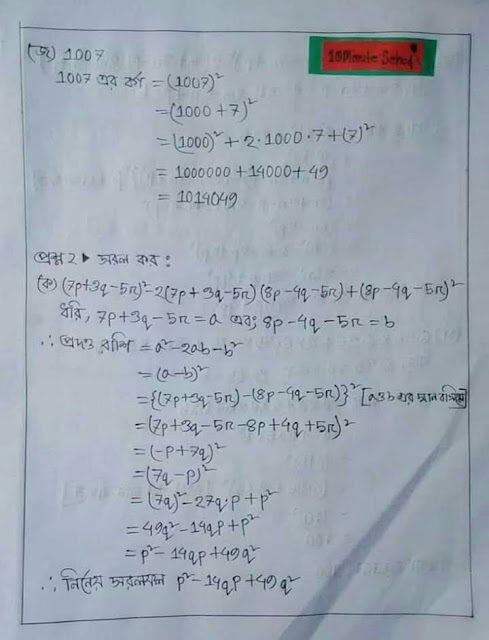 (জ) 1007
10 Minute School
1007 এর বর্গ = (1007)²
= (1000 + 7)²
= (1000)² + 2·1000·7 + (7)²
= 1000000 + 14000 + 49
= 1014049
প্রশ্ন 2 ▶ সরল কর :
(ক) (7p+3q-5r)²-2(7p+3q-5r)(8p-4q-5r)+(8p-4q-5r)²
ধরি, 7p+3q-5r = a এবং 8p-4q-5r = b
∴ প্রদত্ত রাশি = a²-2ab-b²
= (a-b)²
= {(7p+3q-5r)-(8p-4q-5r)}² [a ও b এর মান বসিয়ে]
= (7p+3q-5r-8p+4q+5r)²
= (-p+7q)²
= (7q-p)²
= (7q)²-27q·p+p²
= 49q²-14qp+p²
= p²-14qp+49q²
∴ নির্নেয় সরলফল p²-14qp+49q²